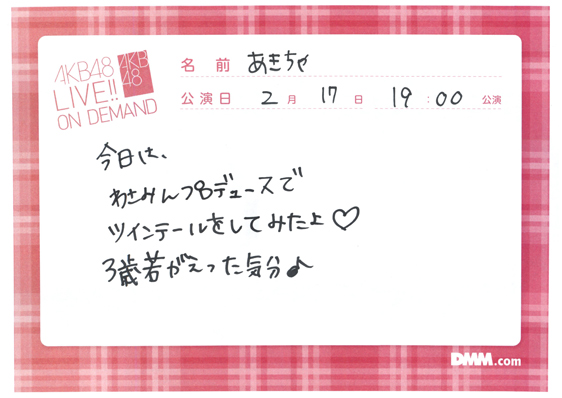 AKB48
LIVE!!
ON DEMAND
AKB
48
名前 あきちゃ
公演日 2月 17日 19:00 公演
今日は、
わさみんつ8デュースで
ツインテールをしてみたよ♡
3歳若がえった気分♪
DMM.com